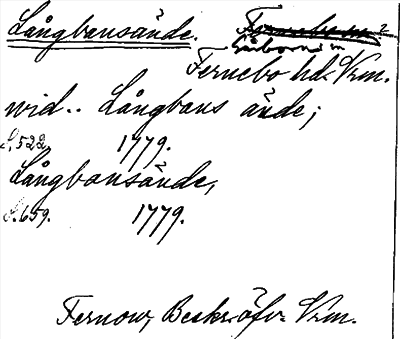 Långbansände.
Färnebo hd. Vrm.
wid.. Långbans ände;
S. 522. 1779.
Långbansände,
S. 659. 1779.
Fernow, Beskr. öfv. Vrm.